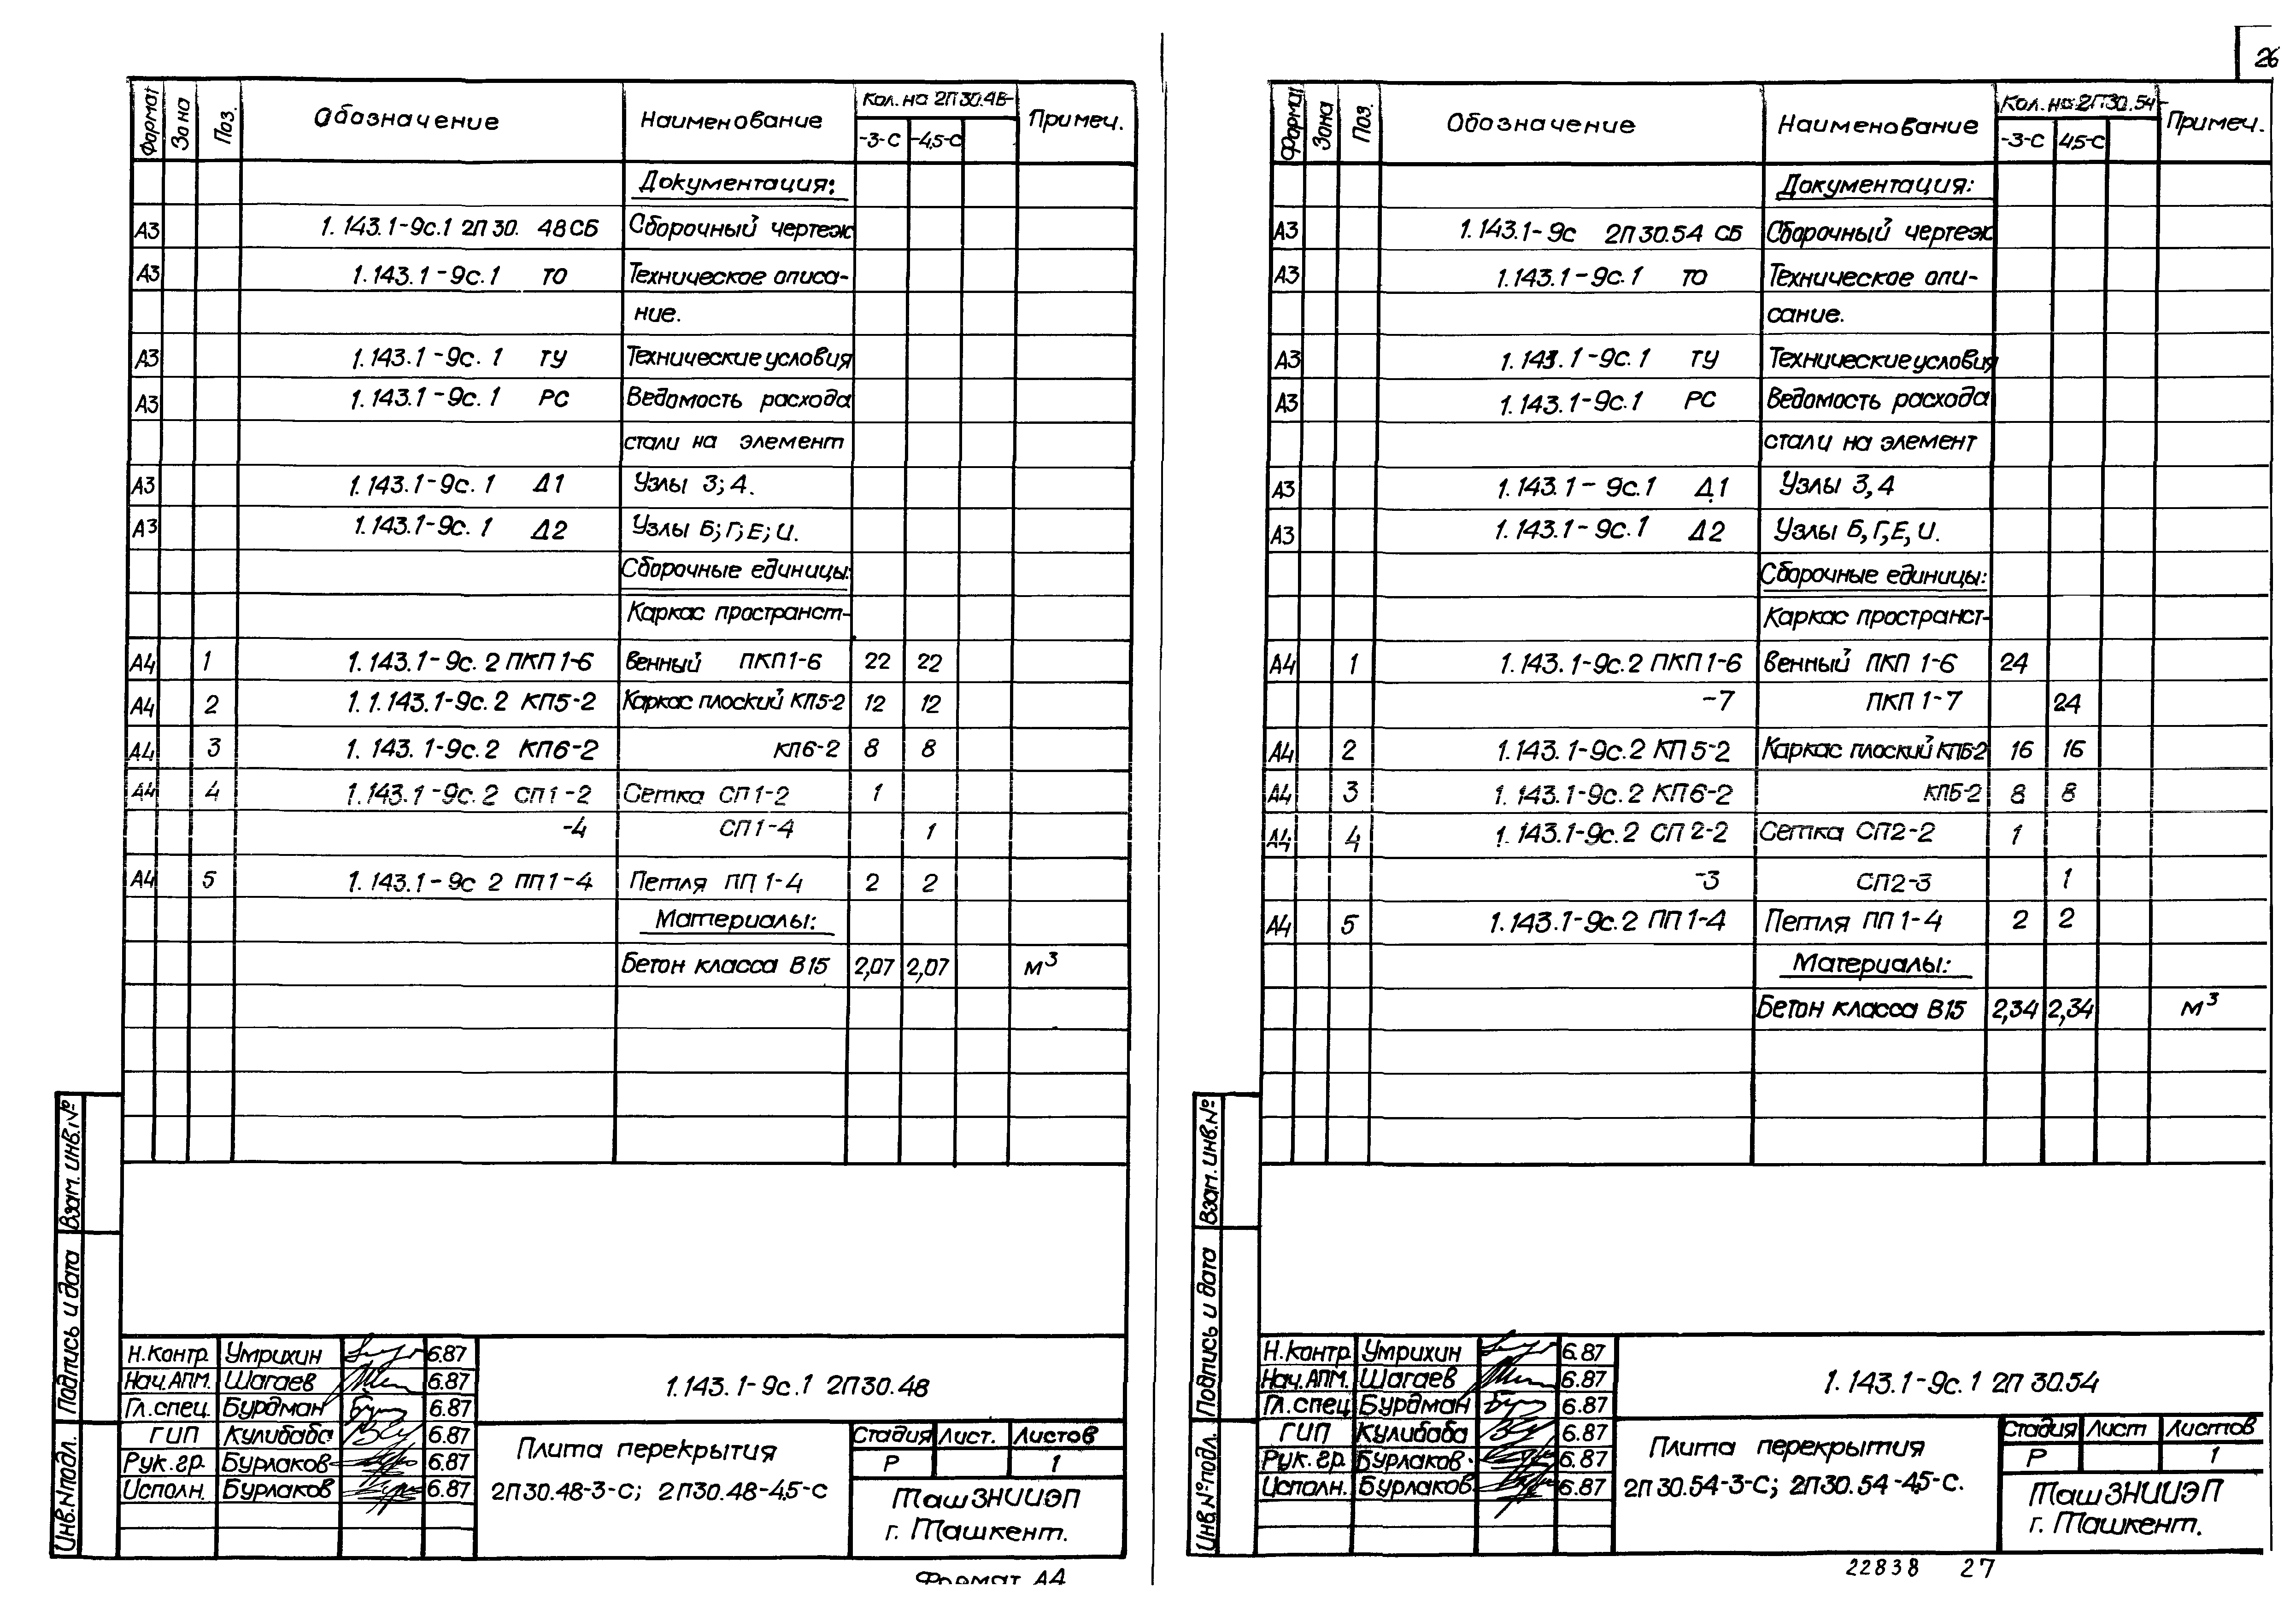 26
Формат Зона Поз. Обозначение Наименование Кол. на 2П30.48- Примеч.
-3-С -4,5-С
Документация:
А3 1.143.1-9с.1 2П30. 48СБ Сборочный чертеж
А3 1.143.1-9с.1 ТО Техническое описа-
ние.
А3 1.143.1-9с.1 ТУ Технические условия
А3 1.143.1-9с.1 РС Ведомость расхода
стали на элемент
А3 1.143.1-9с.1 Д1 Узлы 3; 4.
А3 1.143.1-9с.1 Д2 Узлы Б; Г; Е; И.
Сборочные единицы:
Каркас пространст-
А4 1 1.143.1-9с.2 ПКП1-6 венный ПКП1-6 22 22
А4 2 1.1.143.1-9с.2 КП5-2 Каркас плоский КП5-2 12 12
А4 3 1.143.1-9с.2 КП6-2 КП6-2 8 8
А4 4 1.143.1-9с.2 СП1-2 Сетка СП1-2 1
-4 СП1-4 1
А4 5 1.143.1-9с 2 ПП1-4 Петля ПП1-4 2 2
Материалы:
Бетон класса В15 2,07 2,07 м³
Взам. инв.№
Подпись и дата
Инв.№подл.
Н.Контр. Умрихин 6.87
Нач.АПМ. Шагаев 6.87
Гл.спец. Бурдман 6.87
ГИП Кулибаба 6.87
Рук.гр. Бурлаков 6.87
Исполн. Бурлаков 6.87
1.143.1-9с.1 2П30.48
Плита перекрытия
2П30.48-3-С; 2П30.48-4,5-С
Стадия Лист. Листов
Р 1
ТашЗНИИЭП
г. Ташкент.
Формат А4
Формат Зона Поз. Обозначение Наименование Кол. на 2П30.54- Примеч.
-3-С 4,5-С
Документация:
А3 1.143.1-9с 2П30.54 СБ Сборочный чертеж
А3 1.143.1-9с.1 ТО Техническое опи-
сание.
А3 1.143.1-9с.1 ТУ Технические условия
А3 1.143.1-9с.1 РС Ведомость расхода
стали на элемент
А3 1.143.1-9с.1 Д.1 Узлы 3, 4
А3 1.143.1-9с.1 Д2 Узлы Б, Г, Е, И.
Сборочные единицы:
Каркас пространст-
А4 1 1.143.1-9с.2 ПКП1-6 венный ПКП 1-6 24
-7 ПКП 1-7 24
А4 2 1.143.1-9с.2 КП5-2 Каркас плоский КП5-2 16 16
А4 3 1.143.1-9с.2 КП6-2 КП6-2 8 8
А4 4 1.143.1-9с.2 СП2-2 Сетка СП2-2 1
-3 СП2-3 1
А4 5 1.143.1-9с.2 ПП1-4 Петля ПП1-4 2 2
Материалы:
Бетон класса В15 2,34 2,34 м³
Взам. инв.№
Подпись и дата
Инв.№подл.
Н.Контр. Умрихин 6.87
Нач.АПМ. Шагаев 6.87
Гл.спец Бурдман 6.87
ГИП Кулибаба 6.87
Рук.гр. Бурлаков 6.87
Исполн. Бурлаков 6.87
1.143.1-9с.1 2П30.54
Плита перекрытия
2П30.54-3-С; 2П30.54-4,5-С.
Стадия Лист Листов
Р 1
ТашЗНИИЭП
г. Ташкент.
22838 27